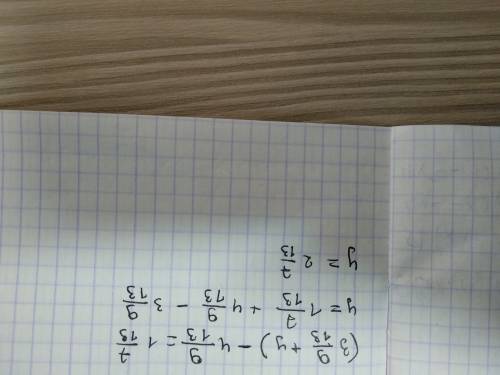 (3 9/13 + y) - 4 9/13 = 1 7/13
y = 1 7/13 + 4 9/13 - 3 9/13
y = 2 7/13